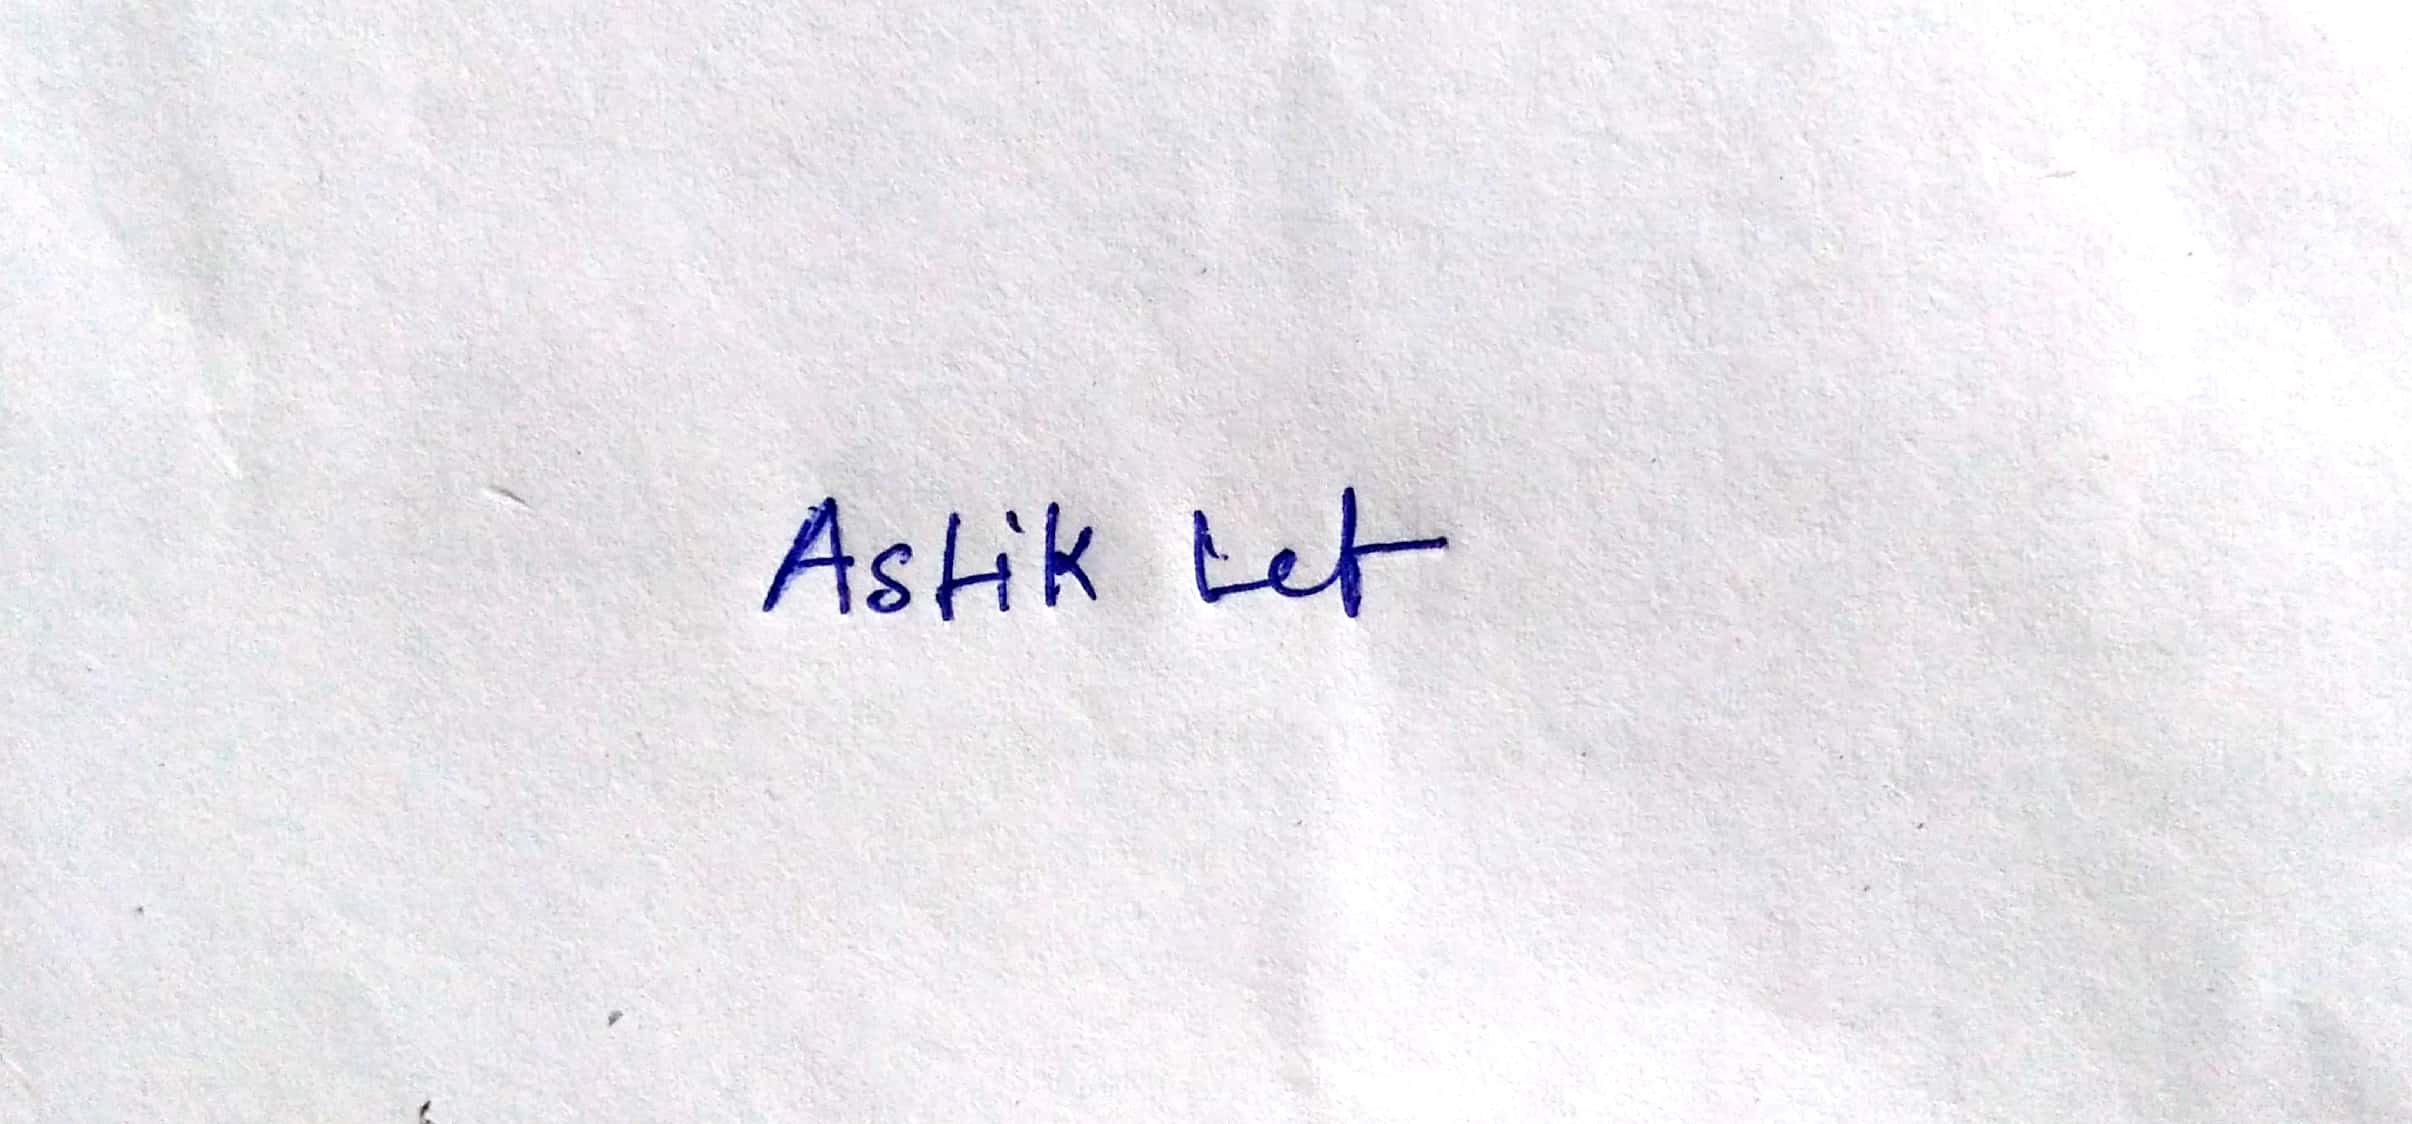 Astik Let